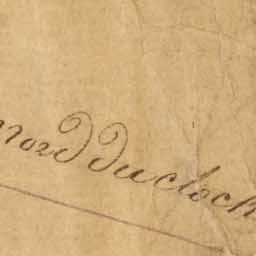 nord du cloch